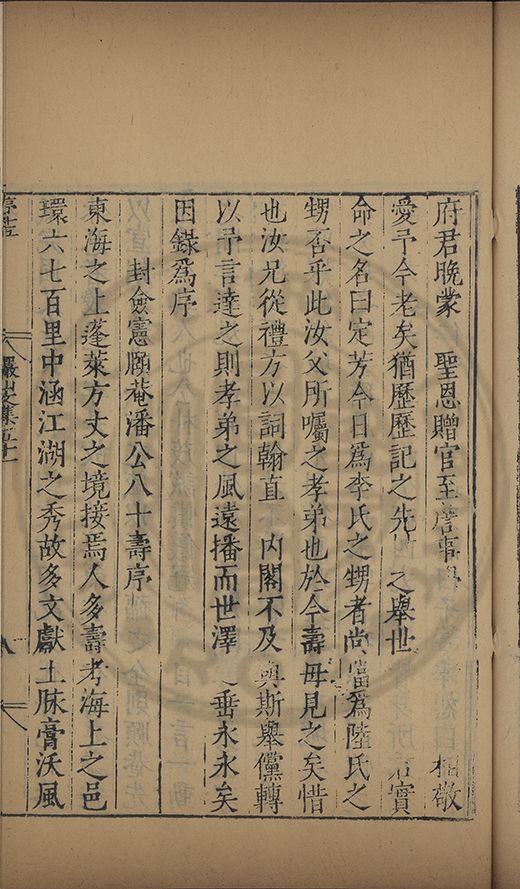 府君晚蒙　聖恩贈官至詹事　敬
愛予今老矣猶歷歷記之先　之舉世　君實
命之名曰定芳今日為李氏之甥者尚當為陸氏之
甥否乎此汝父所囑之孝弟也於今壽毋見之矣惜
也汝兄從禮方以詞翰直　內閣不及與斯舉儻轉
以予言達之則孝弟之風遠播而世澤之垂永永矣
因錄為序
封僉憲願菴潘公八十壽序
東海之上蓬萊方丈之境接焉人多壽考海上之邑
環六七百里中涵江湖之秀故多文獻土脉膏沃風